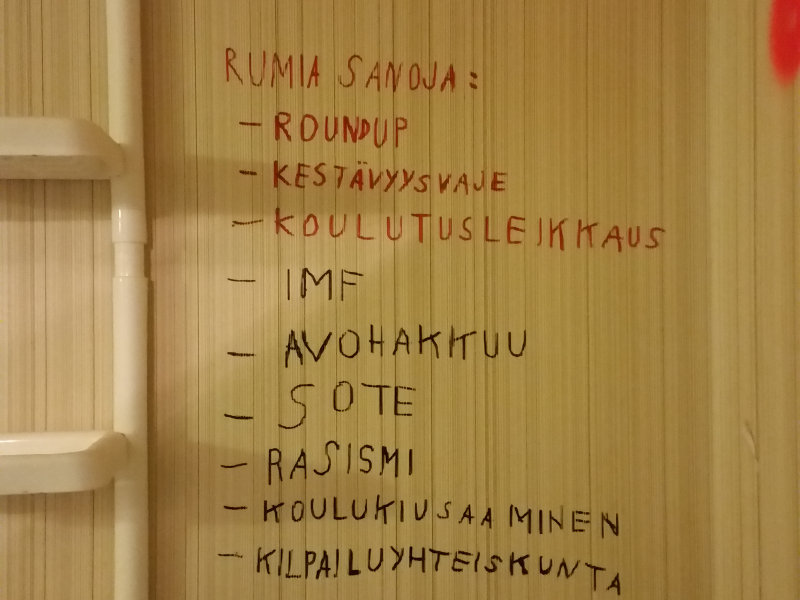 RUMIA SANOJA:
- ROUNDUP
- KESTÄVYYSVAJE
- KOULUTUSLEIKKAUS
- IMF
- AVOHAKKUU
- SOTE
- RASISMI
- KOULUKIUSAAMINEN
- KILPAILUYHTEISKUNTA